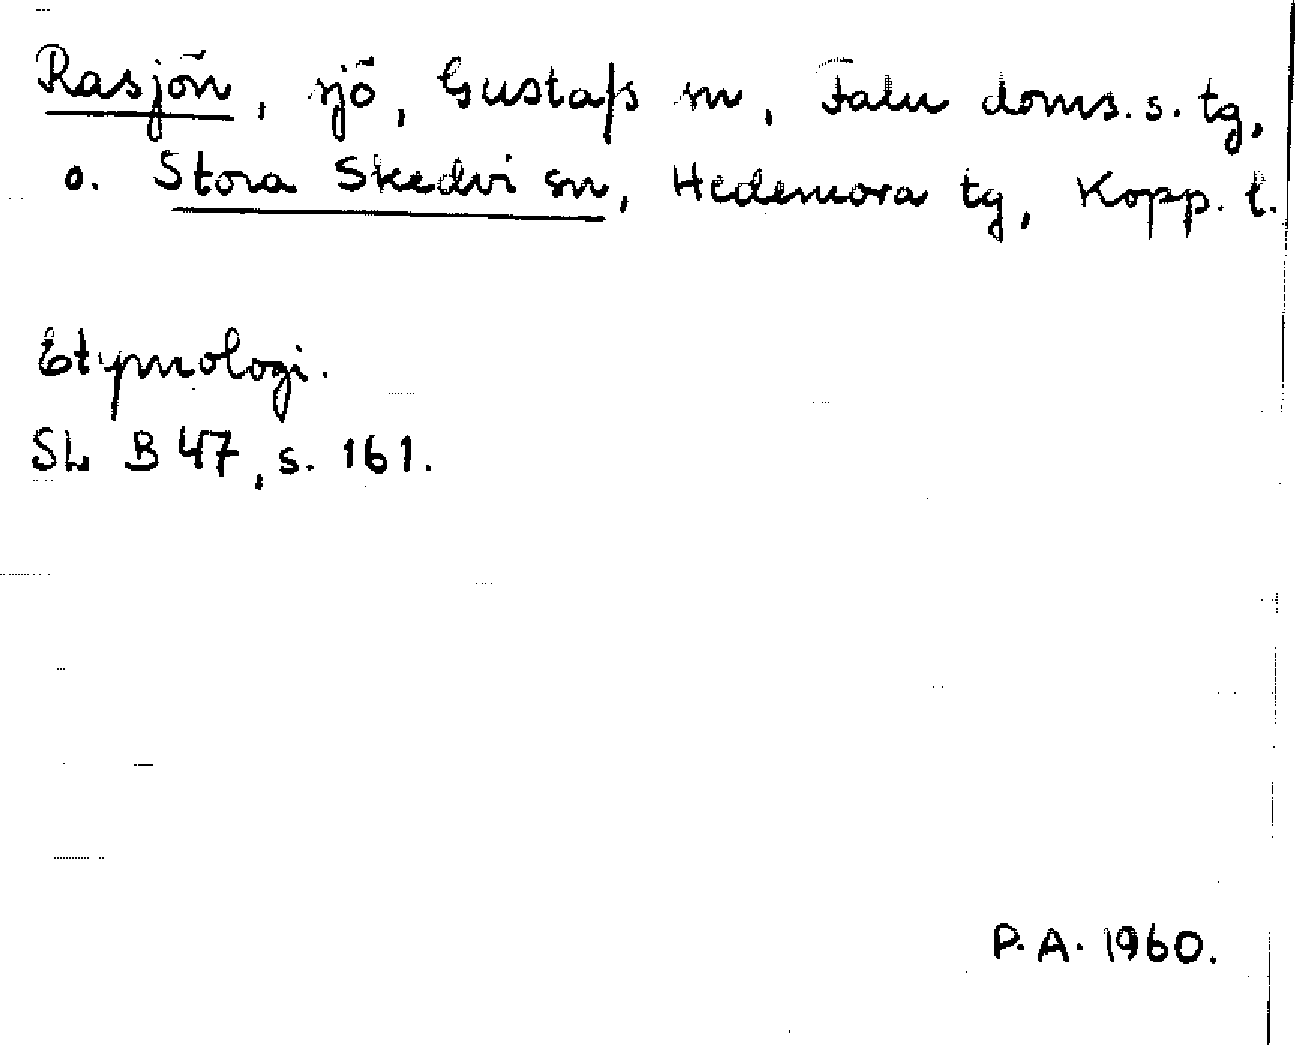 Rasjön, sjö, Gustafs sn, Falu doms. s. tg,
o. Stora Skedvi sn, Hedemora tg, Kopp. l.
Etymologi.
SL B 47, s. 161.
P. A. 1960.